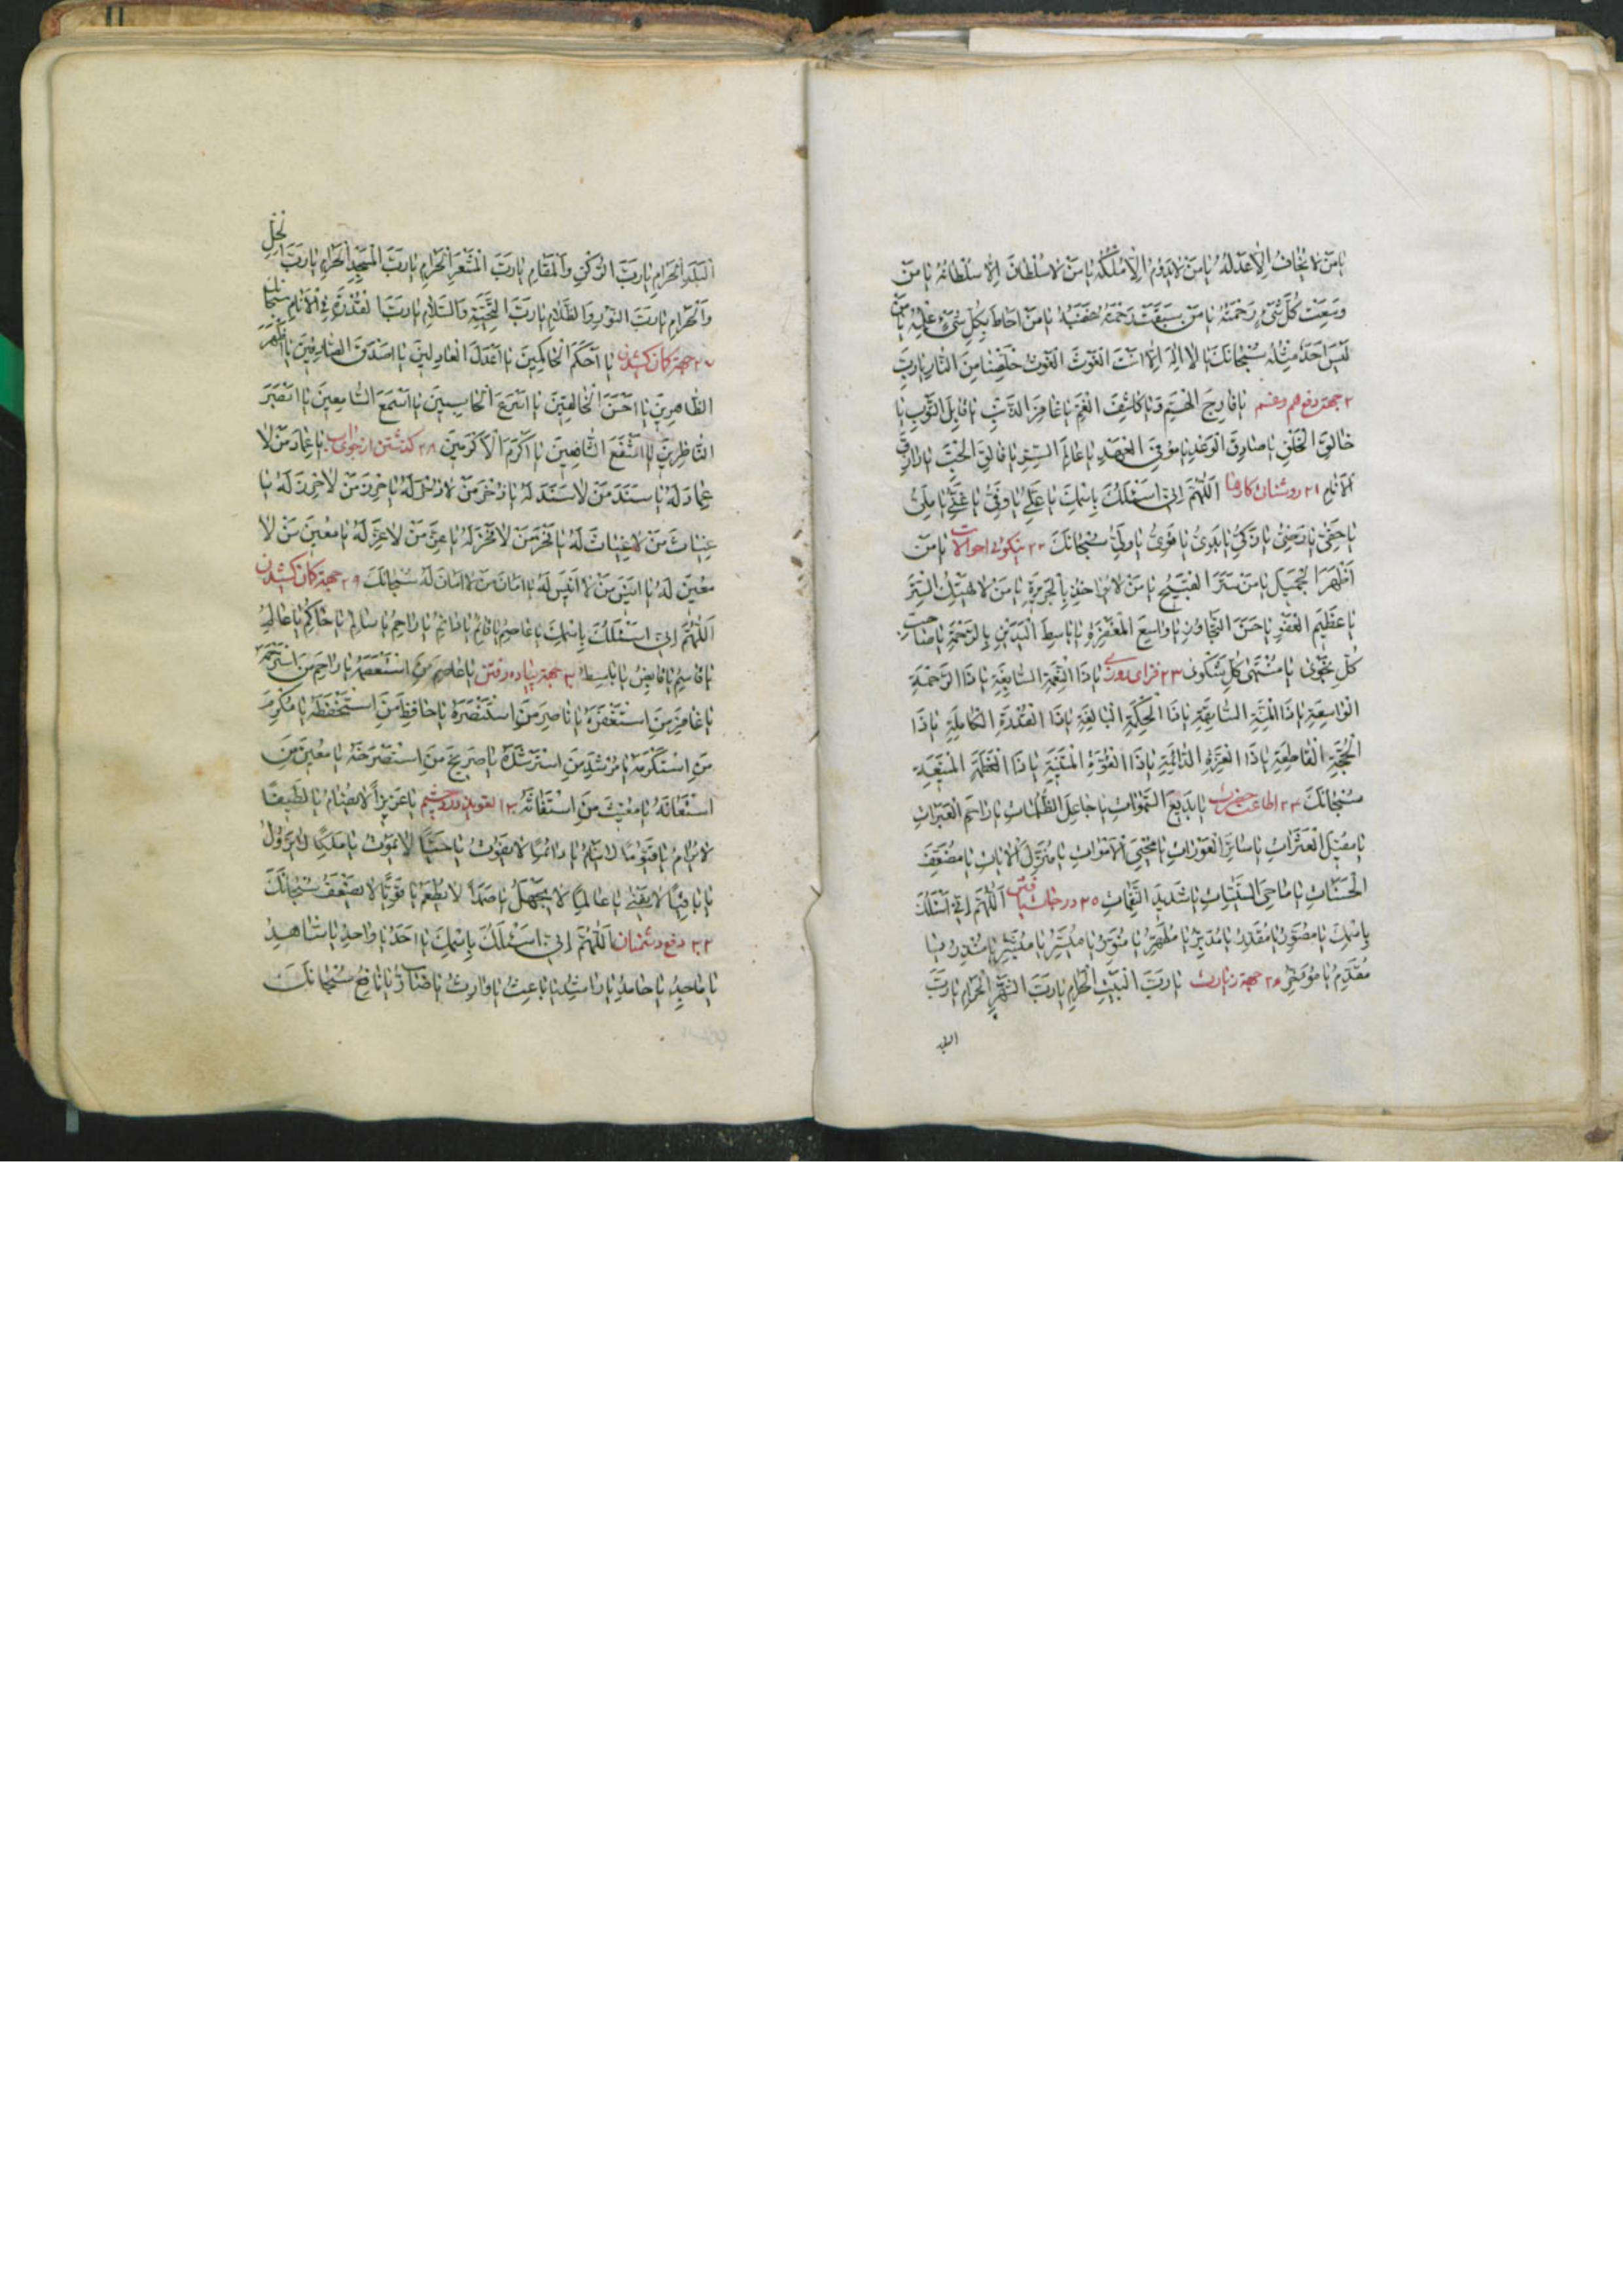 يا من لا يخاف الا عدله يا من لا يدوم الا ملكه يا من لا سلطان الا سلطانه يا من
وسعت كل شيء رحمته يا من سبقت رحمته غضبه يا من احاط بكل شيء علمه يا من
ليس احد مثله سبحانك يا لا اله الا انت الغوث الغوث خلصنا من النار يا رب
جهة دفع هم و غم يا فارج الهم يا كاشف الغم يا غافر الذنب يا قابل التوب يا
خالق الخلق يا صادق الوعد يا موفي العهد يا عالم السر يا فالق الحب يا رازق
الانام ٢١ روشنان كارها اللهم اني اسئلك باسمك يا علي يا وفي يا غني يا ملي
يا حفي يا رضي يا زكي يا بدي يا قوي يا ولي سبحانك ٢٢ نيكوئي احوالات يا من
اظهر الجميل يا من ستر القبيح يا من لا يؤاخذ بالجريرة يا من لا يهتك الستر
يا عظيم العفو يا حسن التجاوز يا واسع المغفرة يا باسط اليدين بالرحمة يا صاحب
كل نجوى يا منتهى كل شكوى ٢٣ فراى روزي يا ذا النعمة السابغة يا ذا الرحمة
الواسعة يا ذا المنة السابقة يا ذا الحكمة البالغة يا ذا القدرة الكاملة يا ذا
الحجة القاطعة يا ذا العزة الدائمة يا ذا القوة المتينة يا ذا العظمة المنيعة
سبحانك ٢٤ اطاعت يا بديع السموات يا جاعل الظلمات يا راحم العبرات
يا مقيل العثرات يا ساتر العورات يا محيي الاموات يا منزل الايات يا مضعف
الحسنات يا ماحي السيئات يا شديد النقمات ٢٥ اللهم اني اسئلك
باسمك يا مصور يا مقدر يا مدبر يا مطهر يا منور يا ميسر يا مبشر يا منذر يا
مقدم يا مؤخر ٢٦ جهة زيارت يا رب البيت الحرام يا رب الشهر الحرام يا رب
البلد
البلد الحرام يا رب الركن والمقام يا رب المشعر الحرام يا رب المسجد الحرام يا رب الحل
والحرام يا رب النور والظلام يا رب التحية والسلام يا رب القدرة في الانام سبحانك
٢٧ جهة كمان كشيدن يا احكم الحاكمين يا اعدل العادلين يا اصدق الصادقين يا اطهر
الطاهرين يا احسن الخالقين يا اسرع الحاسبين يا اسمع السامعين يا ابصر
الناظرين يا اشفع الشافعين يا اكرم الاكرمين ٢٨ يا عماد من لا
عماد له يا سند من لا سند له يا ذخر من لا ذخر له يا حرز من لا حرز له يا
غياث من لا غياث له يا فخر من لا فخر له يا عز من لا عز له يا معين من لا
معين له يا انيس من لا انيس له يا امان من لا امان له سبحانك ٢٩ جهة كمان كشيدن
اللهم اني اسئلك باسمك يا عاصم يا قائم يا دائم يا راحم يا سالم يا حاكم يا عالم
يا قاسم يا قابض يا باسط ٣٠ جهة پياده رفتن يا عاصم من استعصمه يا راحم من استرحمه
يا غافر من استغفره يا ناصر من استنصره يا حافظ من استحفظه يا مكرم
من استكرمه يا مرشد من استرشده يا صريخ من استصرخه يا معين من
استعانه يا مغيث من استغاثه ٣١ يا عزيزا لا يضام يا لطيفا
لا يرام يا قيوما لا ينام يا دائما لا يفوت يا حيا لا يموت يا ملكا لا يزول
يا باقيا لا يفنى يا عالما لا يجهل يا صمدا لا يطعم يا قويا لا يضعف سبحانك
٣٢ دفع دشمنان اللهم اني اسئلك باسمك يا احد يا واحد يا شاهد
يا ماجد يا حامد يا راشد يا باعث يا وارث يا ضار يا نافع سبحانك